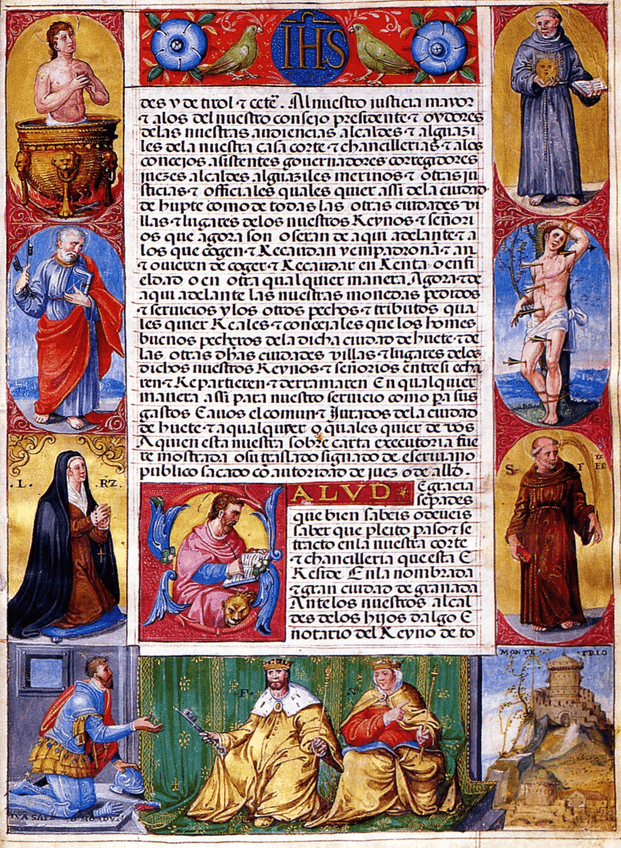 IHS
des y de titol ⁊ cetª. Al nuestro iusticia mayor
⁊ alos del nuestro consejo presidente ⁊ oydores
delas nuestras audiencias alcaldes ⁊ alguazi
les dela nuestra casa corte ⁊ chancillerias ⁊ alos
concejos asistentes governadores corregidores
juezes alcaldes alguaziles merinos ⁊ otras ju
sticias ⁊ officiales quales quier assi dela ciudad
de hupte como de todas las otras ciudades vi
llas ⁊ lugares delos nuestros Reynos ⁊ señori
os que agora son o seran de aqui adelante ⁊ a
los que cogen ⁊ Recaudan y empadronan ⁊ an
⁊ ovieren de coger ⁊ Recaudar en Renta o en fi
eldad o en otra qual quier manera Agora ⁊ de
aqui adelante las nuestras monedas pedidos
⁊ servicios y los otros pechos ⁊ tributos qua
les quier Reales ⁊ concejales que los homes
buenos pecheros dela dicha ciudad de huete ⁊ de
las otras dhas ciudades villas ⁊ lugares delos
dichos nuestros Reynos ⁊ señorios entre si echa
ren ⁊ Repartieren ⁊ derramaren En qualquier
manera assi para nuestro servicio como pa sus
gastos E a vos el comun ⁊ Jurados dela ciudad
de huete ⁊ a qualquier o quales quier de vos
A quien esta nuestra sobre carta executoria fue
re mostrada o su traslado signado de escrivano
publico sacado cō autoridad de juez o de alld.
ALVD Egracia
sepades
que bien sabeis o deveis
saber que pleito paso ⁊ se
tracto en la nuestra corte
⁊ chancilleria que esta E
Reside En la nombrada
⁊ gran ciudad de granada
Ante los nuestros alcal
des delos hijos dalgo E
notario del Reyno de to
L. RZ.
S F
F
MONTE FRIO